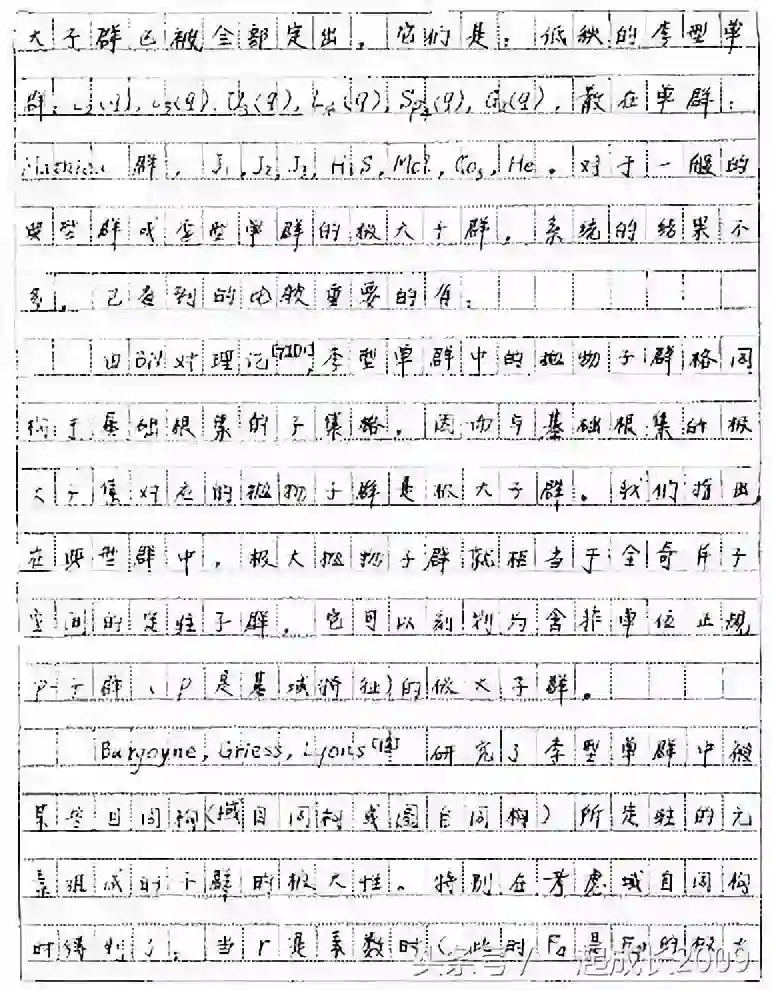 大子群已被全部定出，它们是：低秩的李型单
群：L₂(q), L₃(q), U₃(q), L₄(q), Sp₄(q), G₂(q)，散在单群：
Mathieu 群，J₁, J₂, J₃, HiS, McL, Co₃, He。对于一般的
典型群或李型单群的极大子群，系统的结果不
多，已看到的比较重要的有：
由 BN 对理论，李型单群中的抛物子群格同
构于基础根集的子集格，因而与基础根集的极
大子集对应的抛物子群是极大子群。我们指出，
在典型群中，极大抛物子群就相当于全奇异子
空间的定驻子群，它可以刻划为含非单位正规
p-子群（p是基域特征）的极大子群。
Burgoyne, Griess, Lyons[12] 研究了李型单群中被
某些自同构（域自同构或图自同构）所定驻的元
素组成的子群的极大性。特别在考虑域自同构
时得到了，当 r 是素数时（此时 Fq 是 的极大
头条号 / 一起成长2009